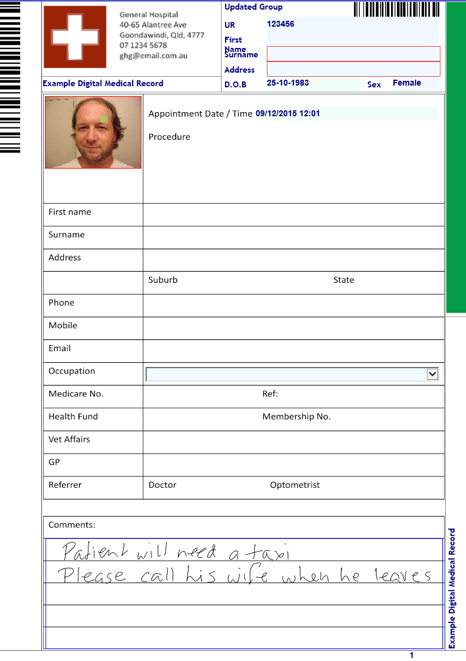 General Hospital
40-65 Alantree Ave
Goondawindi, Qld, 4777
07 1234 5678
ghg@email.com.au
Example Digital Medical Record
Updated Group
UR 123456
First
Name
Surname
Address
D.O.B 25-10-1983 Sex Female
Appointment Date / Time 09/12/2015 12:01
Procedure
First name
Surname
Address
Suburb State
Phone
Mobile
Email
Occupation
Medicare No. Ref:
Health Fund Membership No.
Vet Affairs
GP
Referrer Doctor Optometrist
Comments:
Patient will need a taxi
Please call his wife when he leaves
Example Digital Medical Record
1